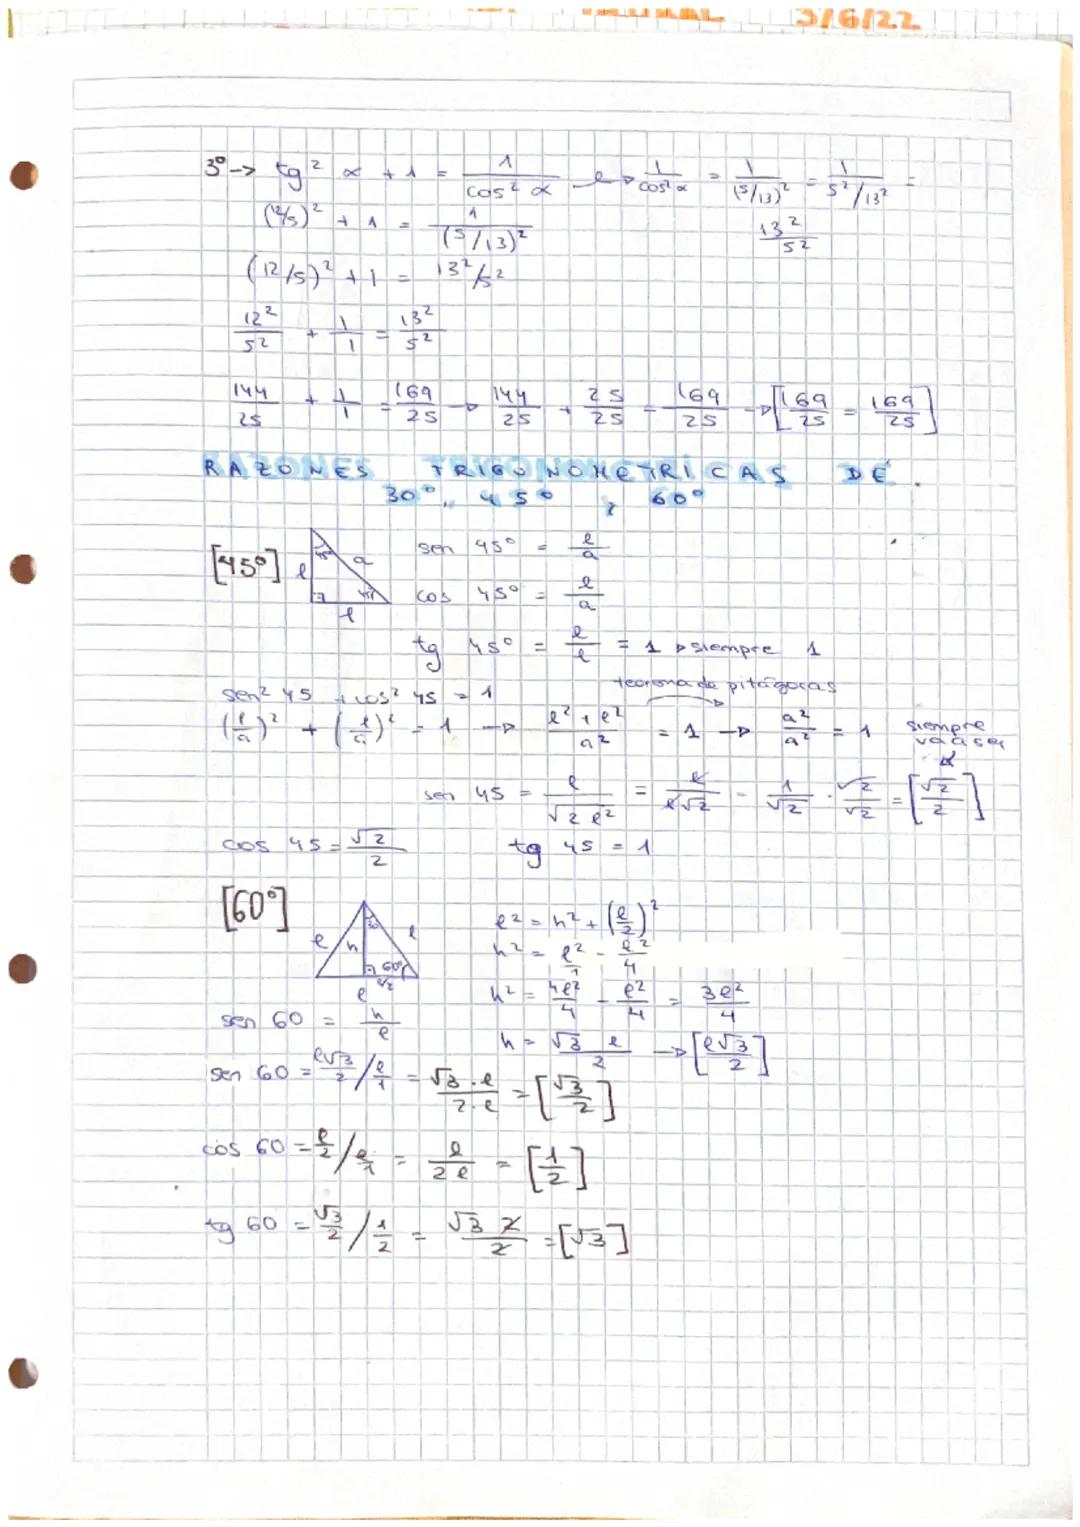 3/6/22
3º -> tg² α + 1 = 1/cos² α -> 1/cos² α = 1/(5/13)² = 1/5²/13² =
(12/5)² + 1 = 1/(5/13)² 13²/5²
(12/5)² + 1 = 13²/5²
12²/5² + 1/1 = 13²/5²
144/25 + 1/1 = 169/25 -> 144/25 + 25/25 = 169/25 -> [169/25 = 169/25]
RAZONES TRIGONOMETRICAS DE
30º, 45º y 60º
[45º] l 45º a 45º l sen 45º = l/a
cos 45º = l/a
tg 45º = l/l = 1 -> siempre 1
teorema de pitágoras
sen² 45 + cos² 45 = 1
(l/a)² + (l/a)² = 1 -> l² + l²/a² = 1 -> a²/a² = 1 siempre va a ser
sen 45 = l/√2 l² = l/l√2 = 1/√2 · √2/√2 = [√2/2]
cos 45 = √2/2 tg 45 = 1
[60º] l h 30 l 60º l/2 l
l² = h² + (l/2)²
h² = l²/1 - l²/4
h² = 4l²/4 - l²/4 = 3l²/4
sen 60 = h/l h = √3 l/2 -> [l√3/2]
sen 60 = l√3/2 / l/1 = √3·l/2·l = [√3/2]
cos 60 = l/2 / l/1 = l/2l = [1/2]
tg 60 = √3/2 / 1/2 = √3 2/2 = [√3]